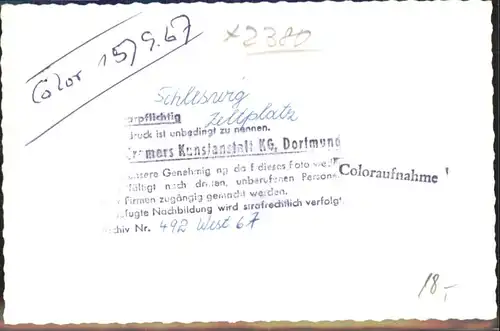 Color 15/9.67
x2380
Schleswig
Zeltplatz
arpflichtig
druck ist unbedingt zu nennen.
Cramers Kunstanstalt KG, Dortmund
unsere Genehmig ng da f dieses Foto
fältigt noch dritten, unberufenen Persone
r Firmen zugängig gemacht werden.
fugte Nachbildung wird strafrechtlich verfolgt
Archiv Nr. 492 West 67
Coloraufnahme
18,-